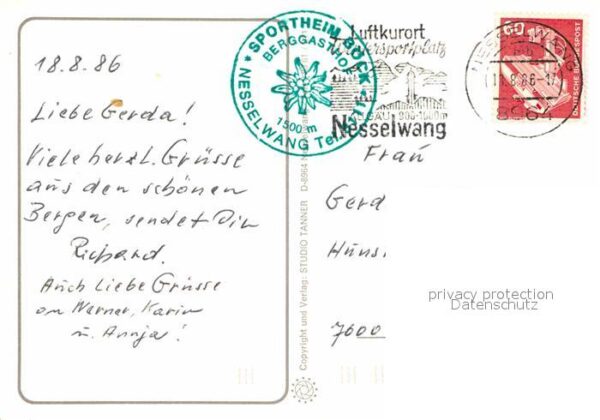 18.8.86
Liebe Gerda!
Viele herzl. Grüsse
aus den schönen
Bergen, sendet Dir
Richard.
Auch Liebe Grüsse
an Werner, Karin
u. Annja!
SPORTHEIM BÖCK
BERGGASTHOF
1500 m
NESSELWANG Tel.
Luftkurort
Wintersportplatz
ALLGÄU 900-1600m
Nesselwang
60
DEUTSCHE BUNDESPOST
NESSELWANG
8964
Frau
Gerd
Huns.
7600
Copyright und Verlag: STUDIO TANNER D-8964
privacy protection
Datenschutz